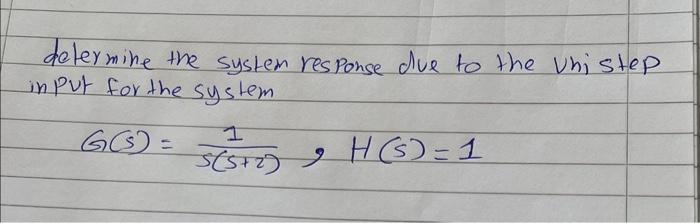 determine the system response due to the uni step
input for the system
G(s) = 1/s(s+2) , H(s) = 1